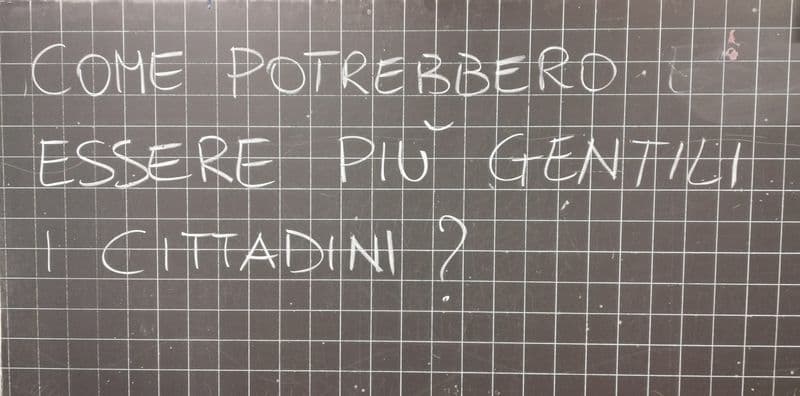 COME POTREBBERO
ESSERE PIÙ GENTILI
I CITTADINI?